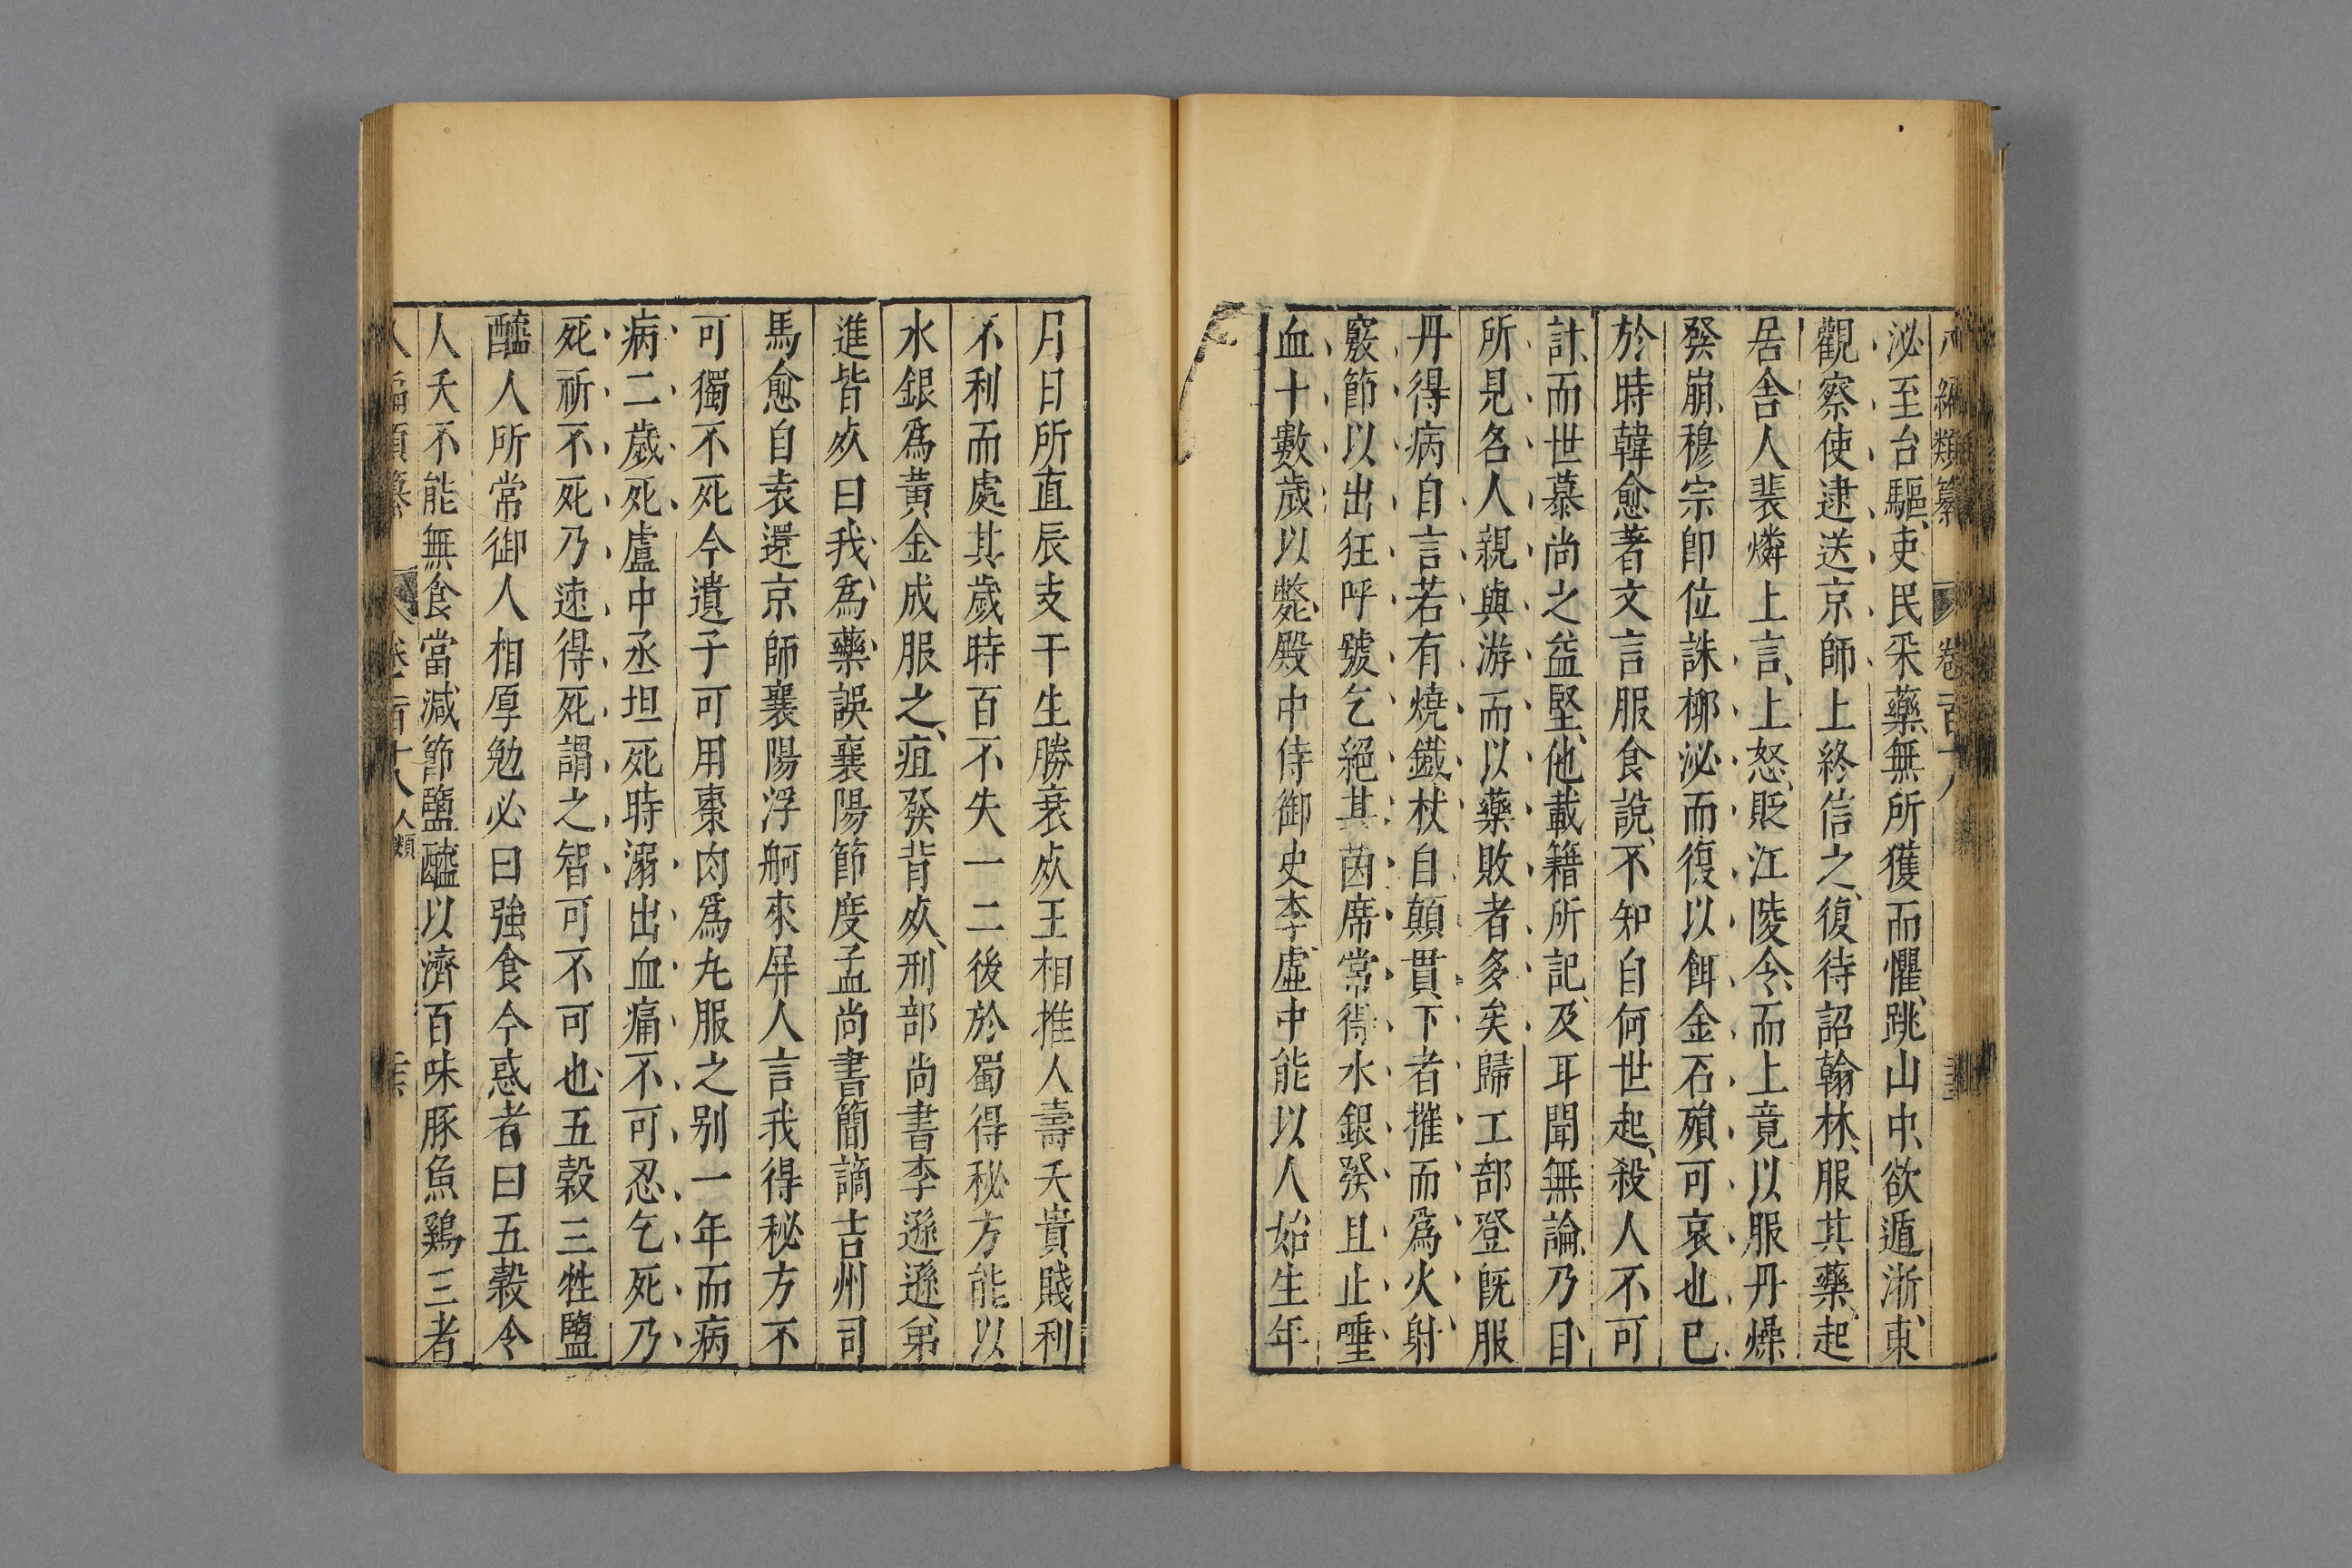 編類纂 卷百十八
泌至台驅吏民采藥無所獲而懼跳山中欲遁浙東
觀察使逮送京師上終信之復待詔翰林服其藥起
居舍人裴燐上言上怒貶江陵令而上竟以服丹燥
發崩穆宗卽位誅柳泌而復以餌金石殞可哀也已
於時韓愈著文言服食說不知自何世起殺人不可
計而世慕尚之益堅他載籍所記及耳聞無論乃目
所見名人親與游而以藥敗者多矣歸工部登旣服
丹得病自言若有燒鐵杖自顛貫下者摧而爲火射
竅節以出狂呼號乞絕其茵席常得水銀發且止唾
血十數歲以斃殿中侍御史李虛中能以人始生年
月日所直辰支干生勝衰𣦸王相推人壽夭貴賤利
不利而處其歲時百不失一二後於蜀得秘方能以
水銀爲黃金成服之疽發背𣦸刑部尚書李遜遜弟
進皆𣦸曰我爲藥誤襄陽節度孟尚書簡謫吉州司
馬愈自袁還京師襄陽浮舸來屏人言我得秘方不
可獨不死今遺子可用棗肉爲丸服之別一年而病
病二歲死盧中丞坦死時溺出血痛不可忍乞死乃
死祈不死乃速得死謂之智可不可也五穀三牲鹽
醯人所常御人相厚勉必曰強食今惑者曰五穀令
人夭不能無食當減節鹽醯以濟百味豚魚鷄三者
八編類纂 卷百十八 人類